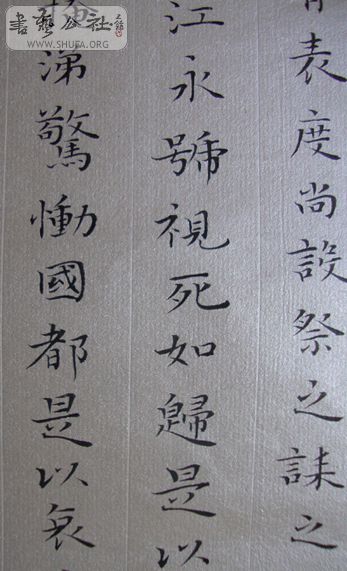 表度尚設祭之誄之
江永號視死如歸是以
涕驚慟國都是以哀
書藝公社
WWW.SHUFA.ORG